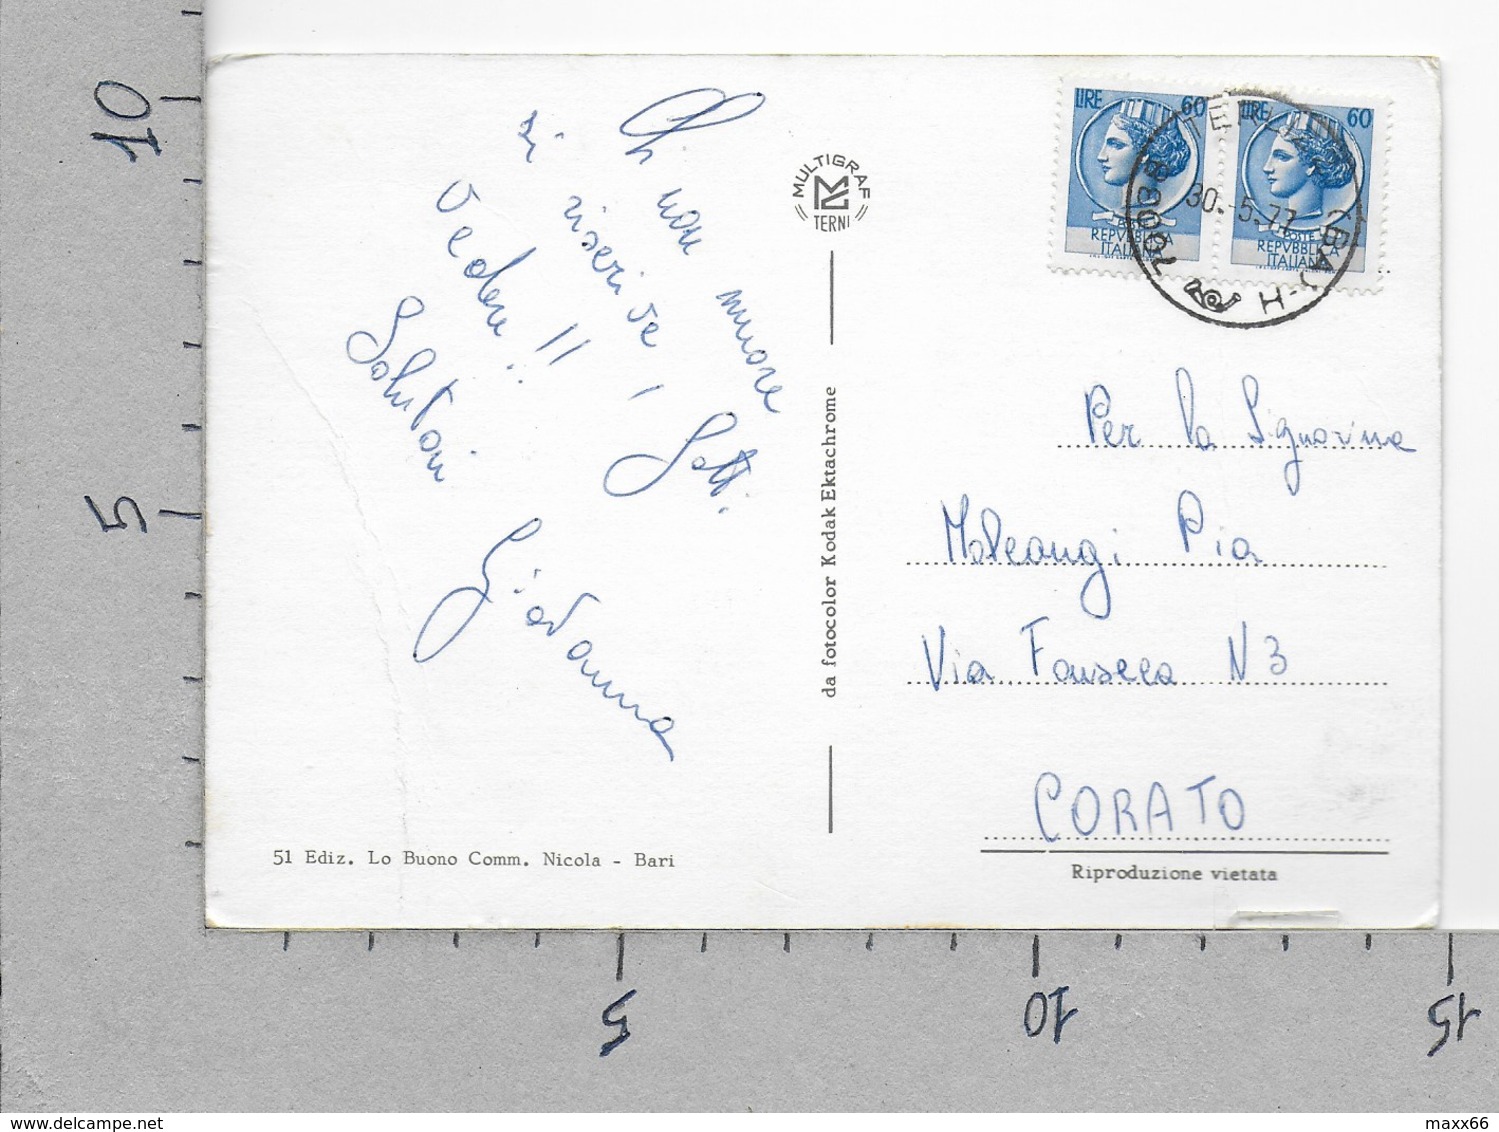 10
5
5
10
15
Chi non muore
si riseri ve
vedere !! , Sett.
Salutoni
Giovanna
51 Ediz. Lo Buono Comm. Nicola - Bari
MULTIGRAF
TERNI
da fotocolor Kodak Ektachrome
LIRE 60
POSTE
REPVBBLICA
ITALIANA
LIRE 60
POSTE
REPVBBLICA
ITALIANA
TERLIZZI (BA)-H
70038
30.-5.77
Per la Signorina
Pia
Via Fonseca N 3
CORATO
Riproduzione vietata
maxx66